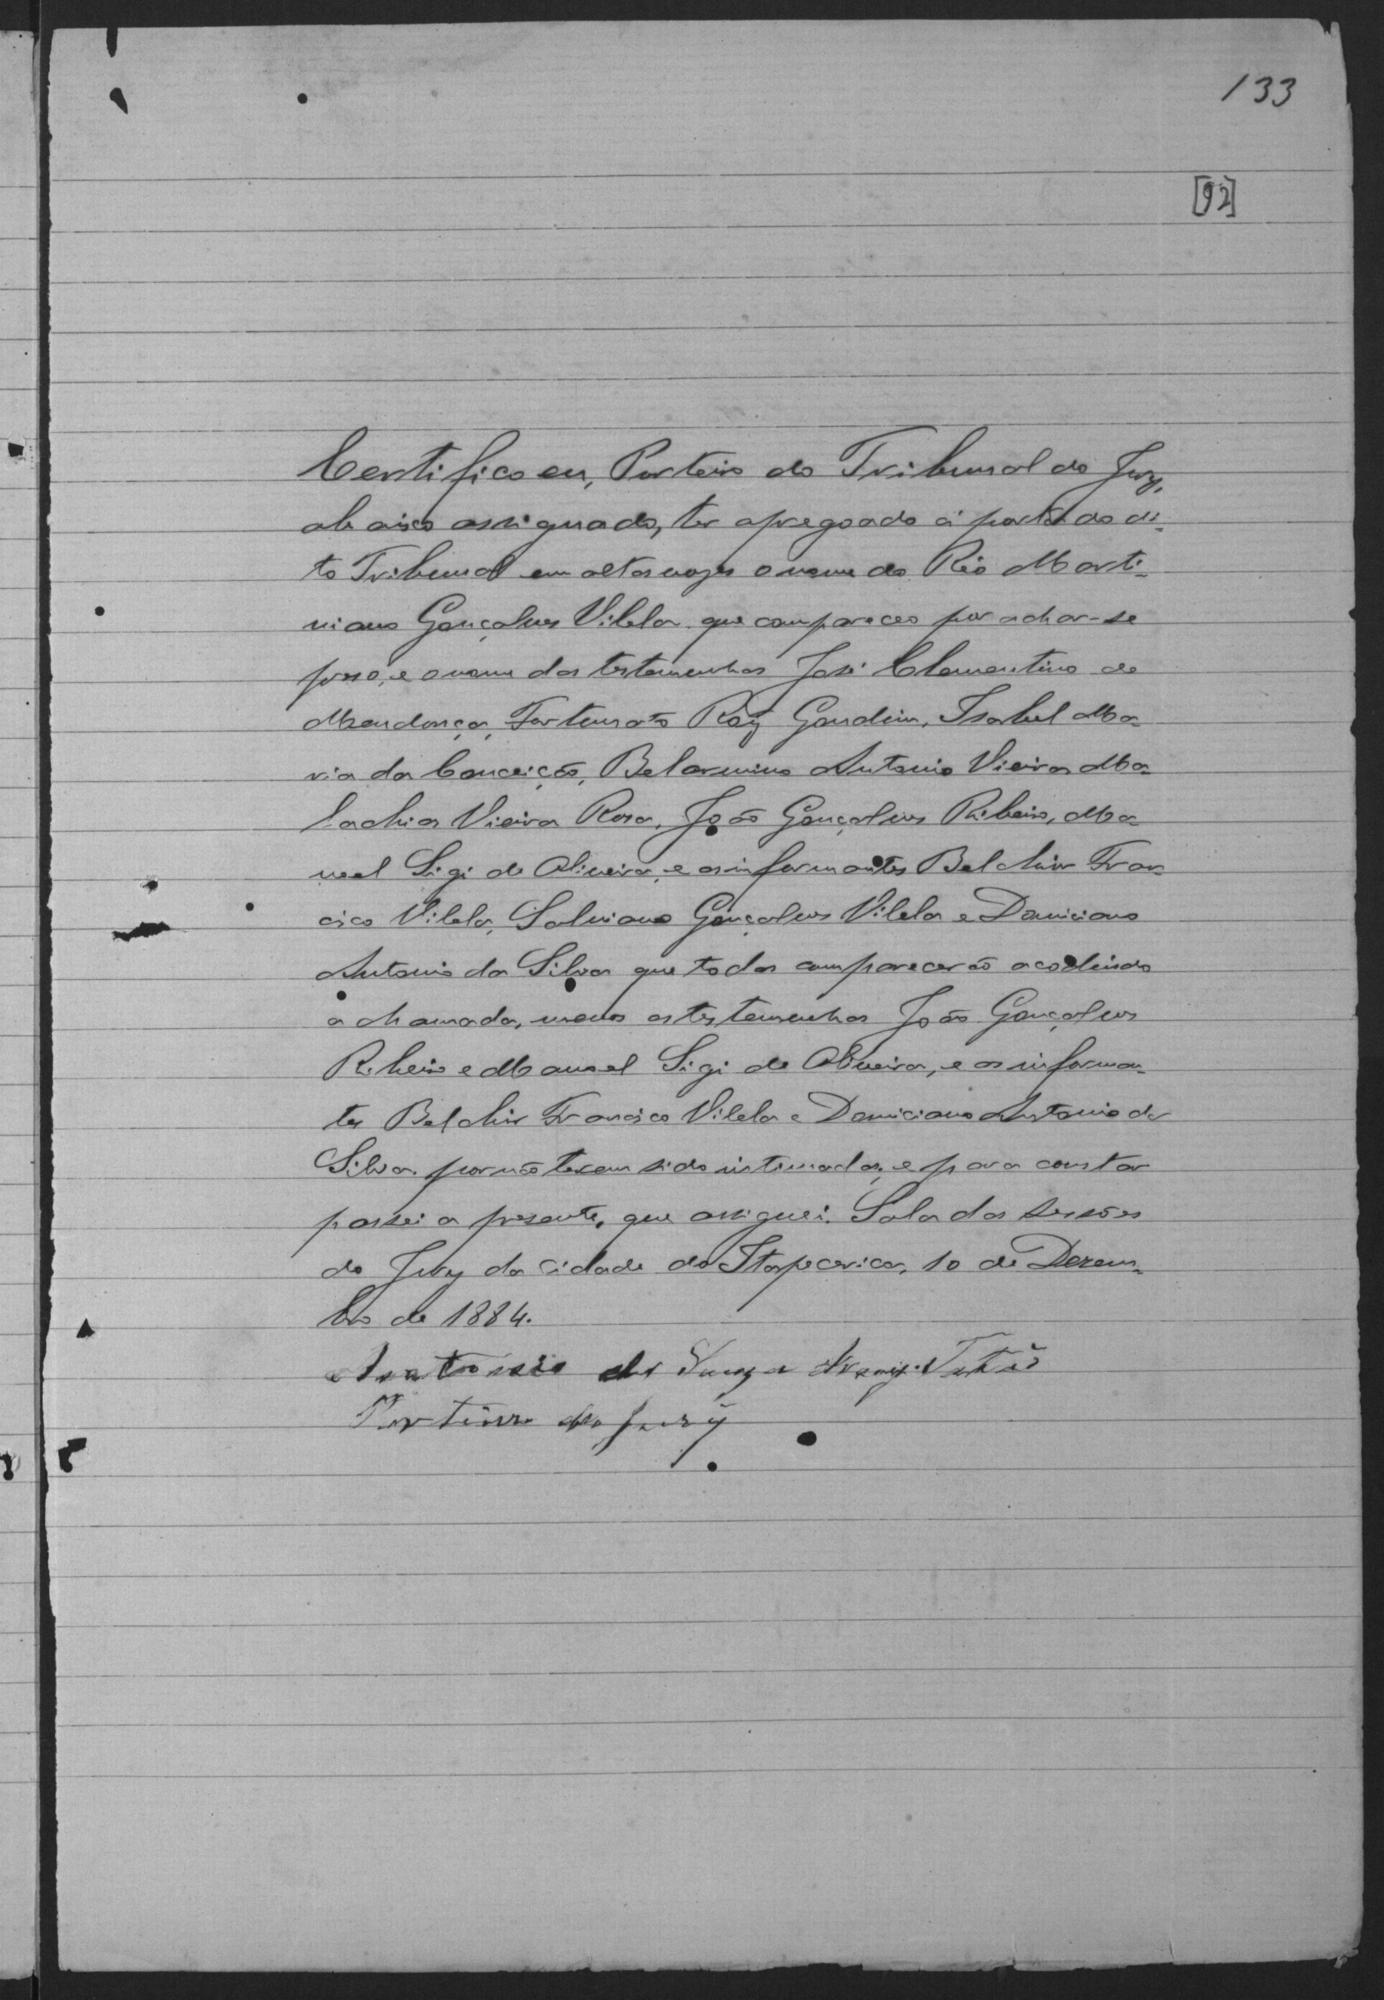 133
[92]
Certifico eu, Porteiro do Tribunal do Jury,
abaixo assignado, ter apregoado á porta do di-
to Tribunal em altas vozes o nome do Réo Marti-
niano Gonçalves Vilela que compareceo por achar-se
preso, e o nome das testemunhas José Clementino de
Mendonça, Fortunato Roiz Gondim, Isabel Ma-
ria da Conceição, Belarmino Antonio Vieira, Ma-
lachias Vieira Rosa, João Gonçalves Ribeiro, Ma-
noel Sigi de Oliveira, e os informantes Belchior Fran-
cisco Vilela, Salviano Gonçalves Vilela e Damiciano
Antonio da Silva que todos comparecerão acodindo
a chamada, menos as testemunhas João Gonçalves
Ribeiro e Manoel Sigi de Oliveira, e os informan-
tes Belchior Francisco Vilela e Damiciano Antonio da
Silva por não terem sido intimados; e para constar
passei a presente, que assignei. Sala das sessões
do Jury da Cidade de Itapecerica, 10 de Dezem-
bro de 1884.
Antonio de Souza
Porteiro do Jury